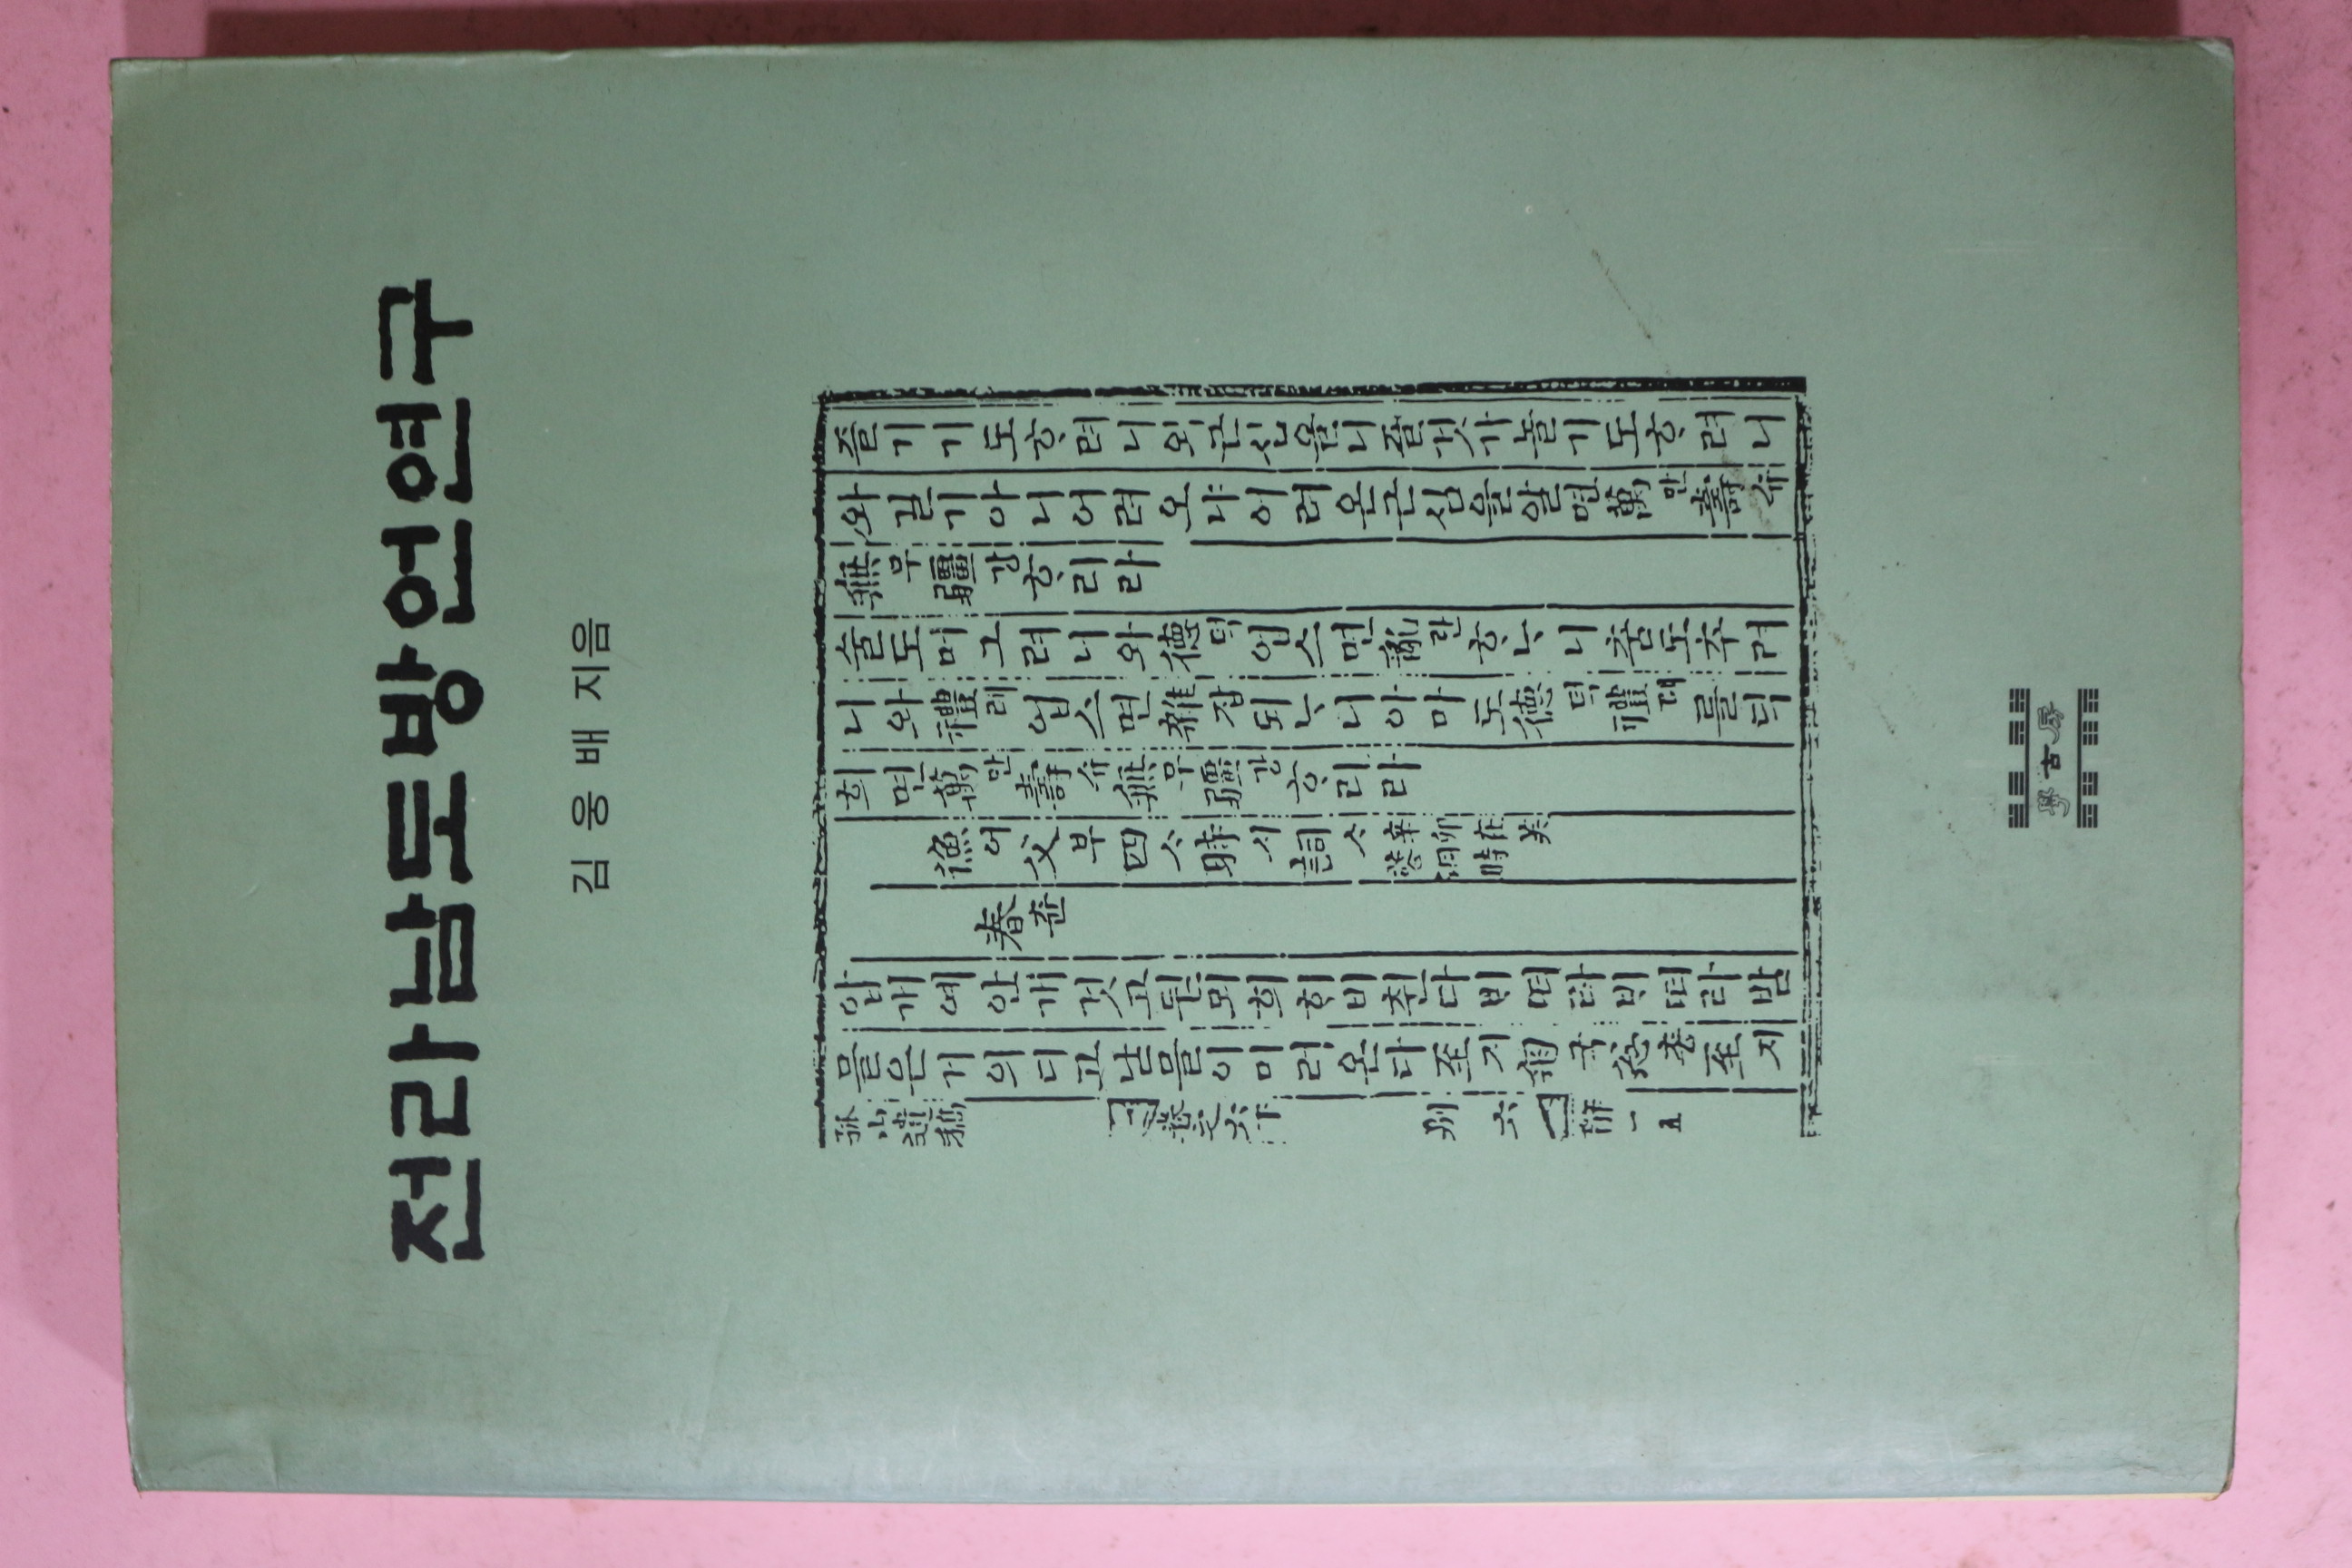 전라남도방언연구
김 웅 배 지음
즐기기도ᄒᆞ려니와근심을니즐것가놀기도ᄒᆞ려니
와길기아니어려오냐어려온근심을알면萬만壽슈
無무疆강ᄒᆞ리라
술도머그려니와德덕업스면亂란ᄒᆞᄂᆞ니춤도추려
니와禮례업스면雜잡되ᄂᆞ니아마도德덕禮례를딕
희면萬만壽슈無무疆강ᄒᆞ리라
漁어父부四ᄉᆞ時시詞ᄉᆞ 辛卯在芙蓉洞時
春츈
압개예안개것고뒫뫼희ᄒᆡ비췬다ᄇᆡ떠라ᄇᆡ떠라밤
믈은거의디고낟믈이미러온다至지匊국悤총至지
孤山遺稿 卷之六下 別 六
學古房